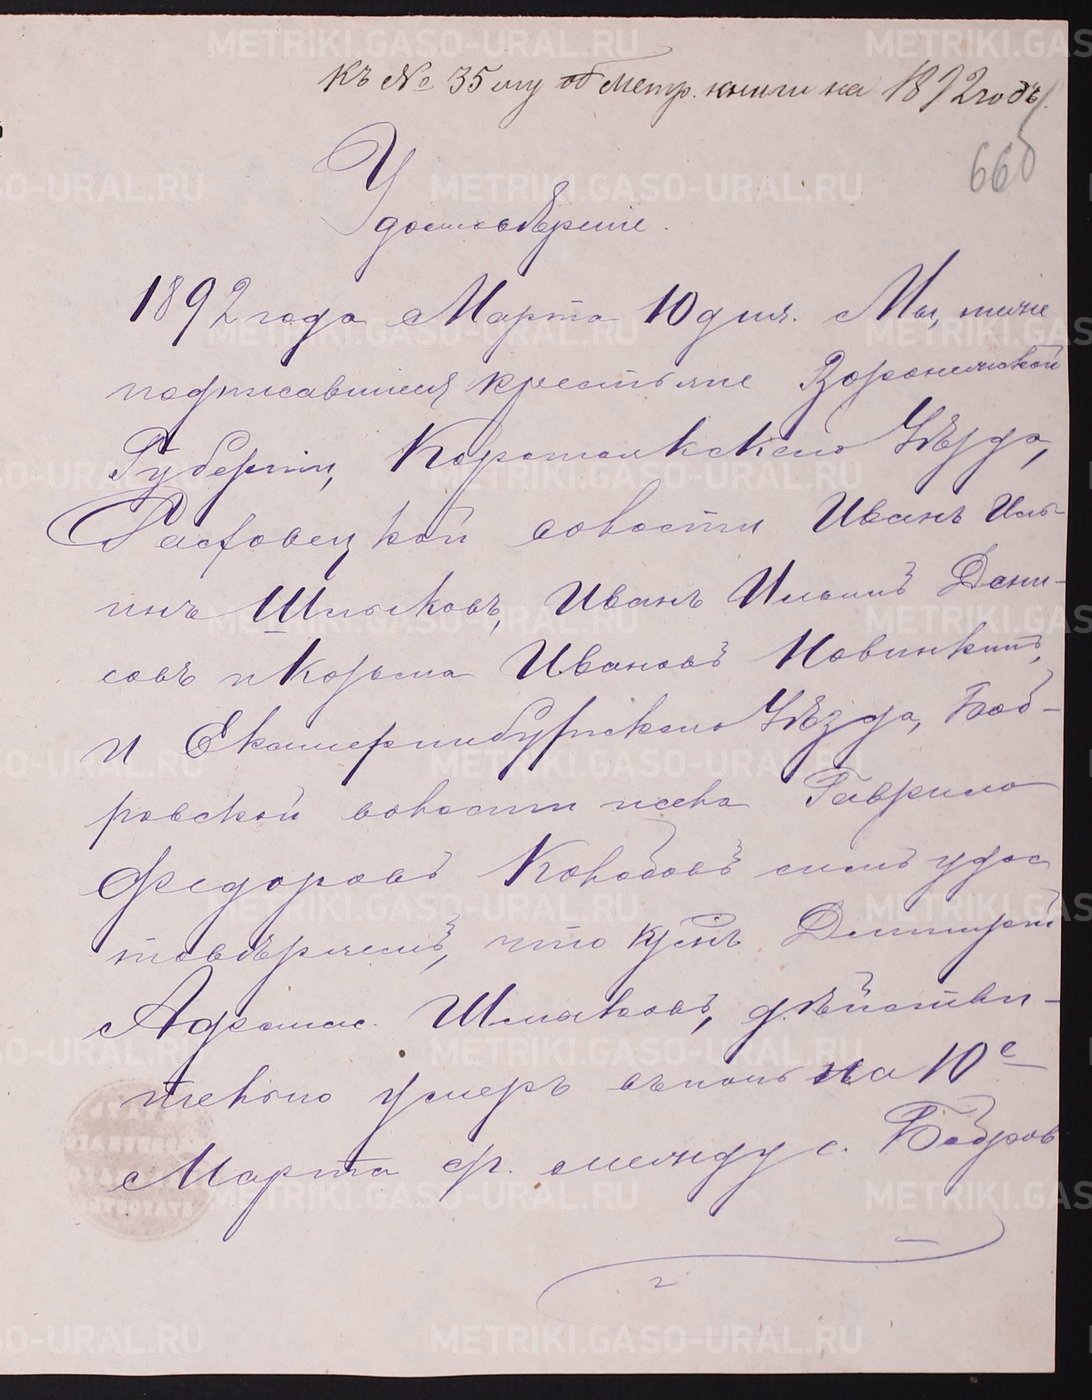 къ № 35му об метр. книги на 1892 годъ.
66б
Удостовѣрение.
1892 года Марта 10 дня. Мы, ниже
подписавшиеся крестьяне Воронежской
Губернии, Коротоякскаго Уѣзда,
волости Иванъ Иль-
инъ Шмыковъ, Иванъ Ильинъ Дени-
совъ и Корьма Ивановъ Новинкинъ,
и Екатеринбургскаго Уѣзда, Боб-
ровской волости села Гаврило
Федоровъ Колобовъ симъ удос
товѣряемъ, что крᵉнъ Дмитрей
Адриан. Шмаковъ, дѣйстви-
тельно умеръ въ ночь на 10ᵉ
Марта с.г. между с. Бобров